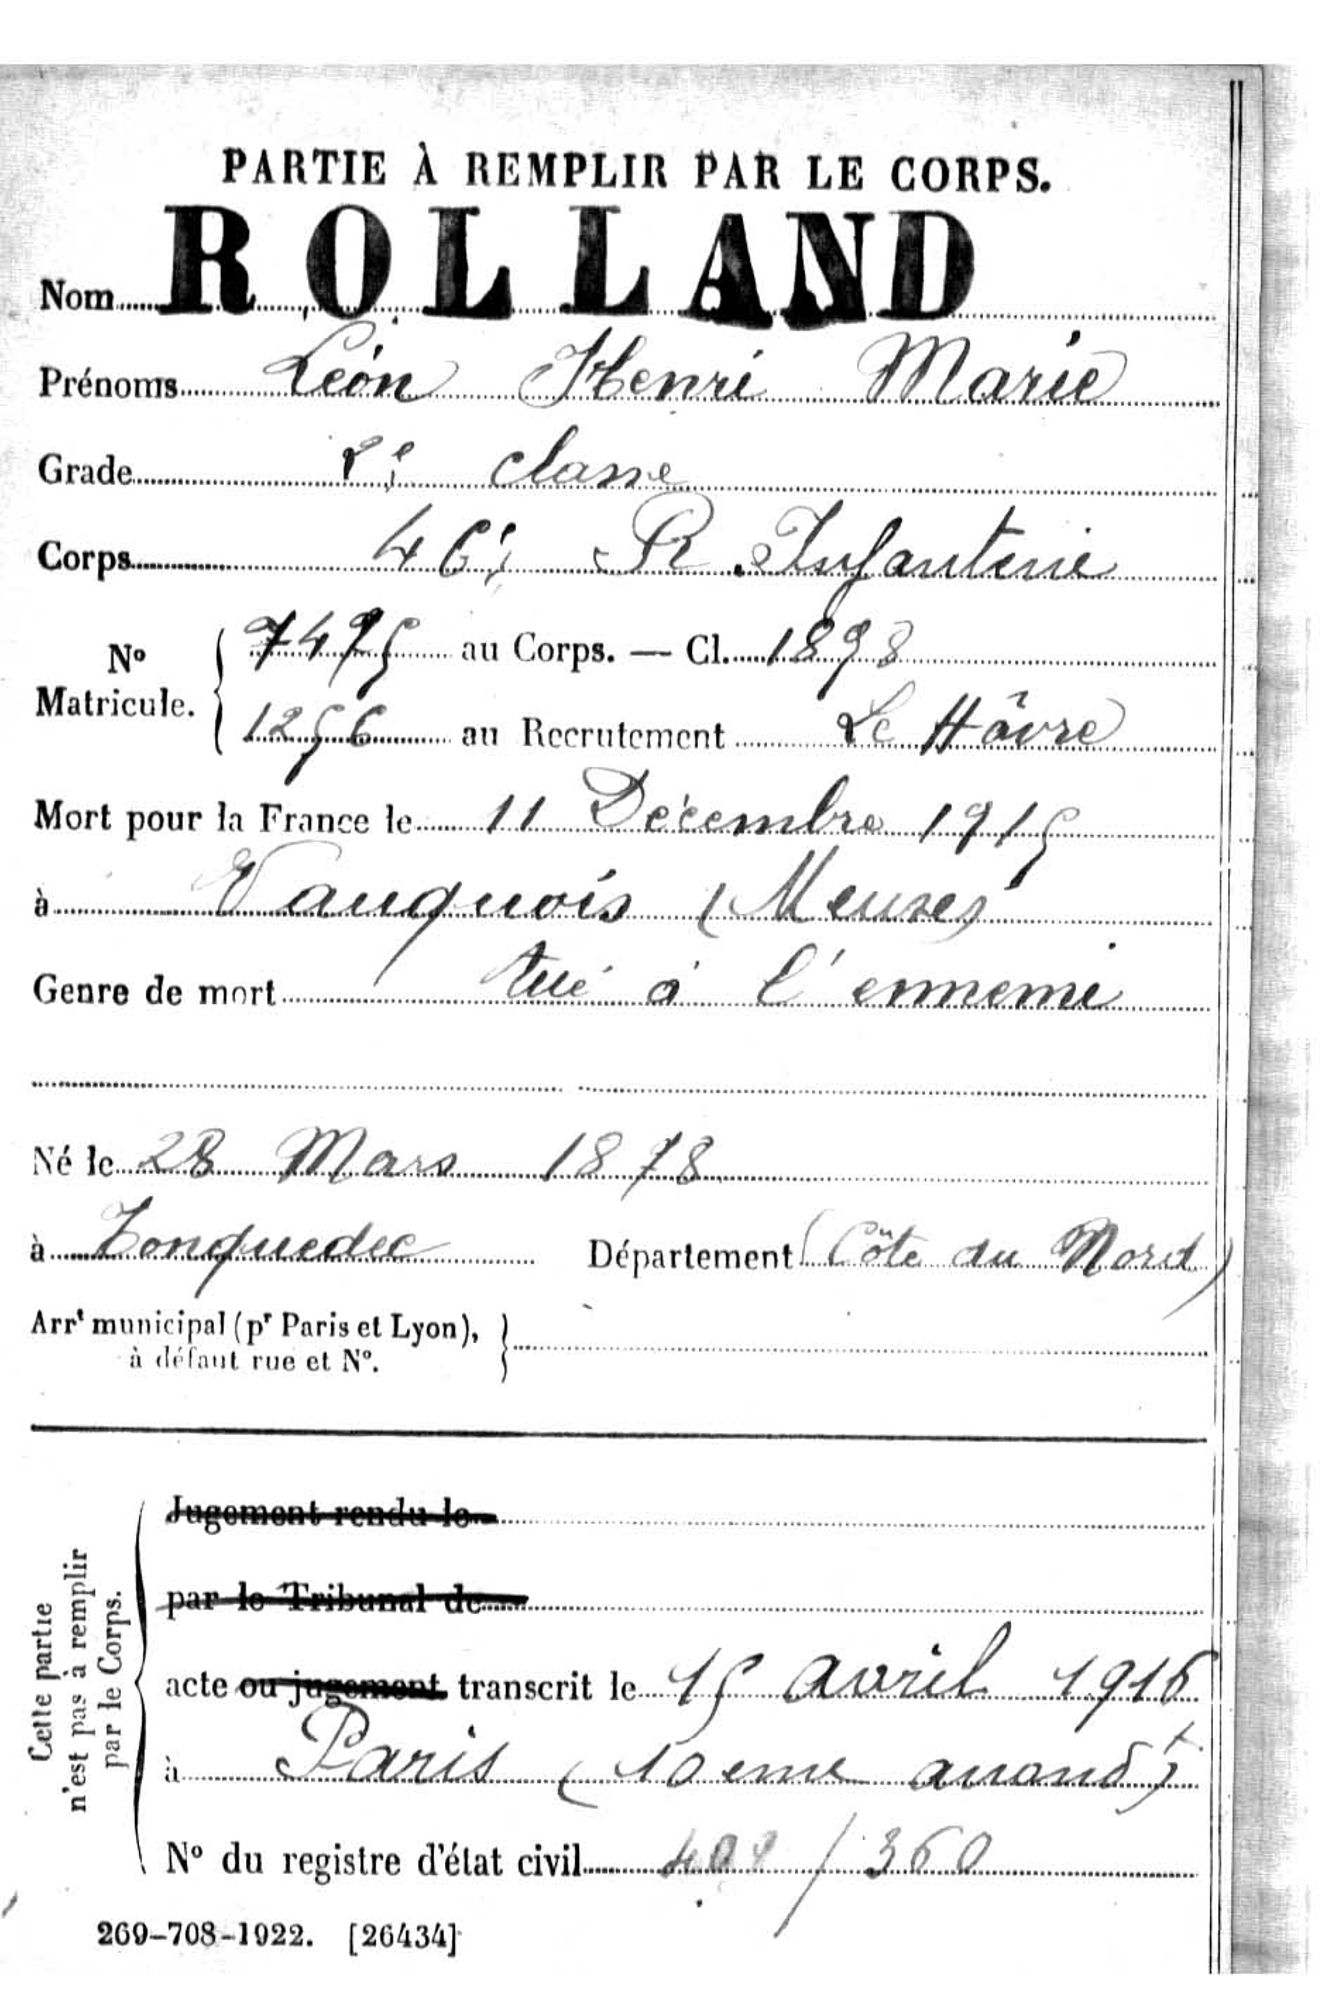 PARTIE À REMPLIR PAR LE CORPS.
Nom ROLLAND
Prénoms Léon Henri Marie
Grade 2e classe
Corps 46e R. Infanterie
No Matricule. { 7495 au Corps. — Cl. 1898
1256 au Recrutement Le Hâvre
Mort pour la France le 11 Décembre 1915
à Vauquois (Meuse)
Genre de mort tué à l'ennemi
Né le 28 Mars 1878
à Tonquedec Département (Côte du Nord)
Arrt municipal (pr Paris et Lyon),
à défaut rue et No.
Cette partie
n'est pas à remplir
par le Corps.
Jugement rendu le
par le Tribunal de
acte ou jugement transcrit le 15 avril 1916
à Paris (10eme arrondt)
No du registre d'état civil / 360
269-708-1922. [26434]